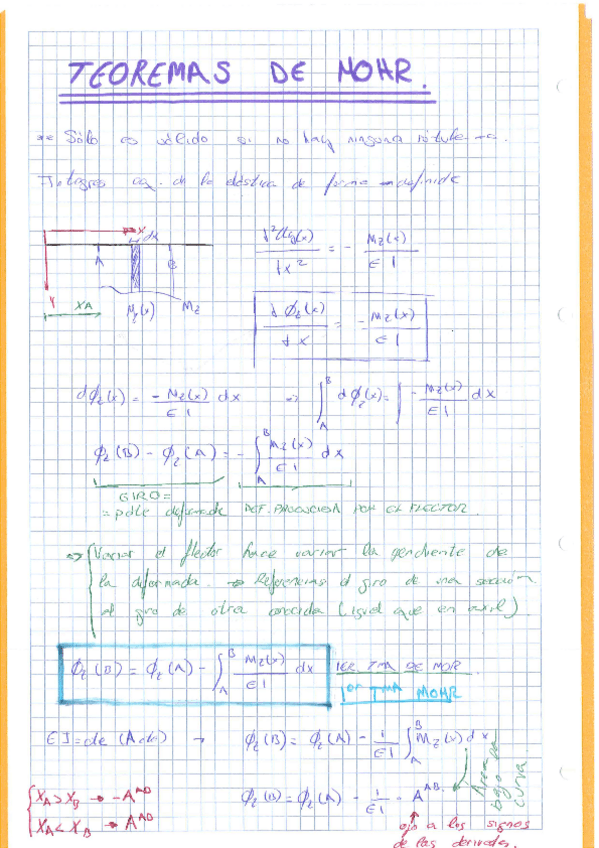 TEOREMAS DE MOHR.
** Sólo es válido si no hay ninguna rótula →.
Integros eq. de la elástica de forma indefinida
x
dx
A
B
Y
XA
Mz(x)
Mz
d²Uy(x)/dx² = - Mz(x)/EI
dϕz(x)/dx = - Mz(x)/EI
dϕz(x) = - Mz(x)/EI dx → ∫_A^B dϕz(x) = ∫ - Mz(x)/EI dx
ϕz(B) - ϕz(A) = - ∫_A^B Mz(x)/EI dx
GIRO =
= pdte deformada DEF. PRODUCIDA POR EL FLECTOR.
⇒ Variar el flector hace variar la pendiente de
la deformada. → Referencias el giro de una sección
al giro de otra conocida (igual que en axil).
ϕz(B) = ϕz(A) - ∫_A^B Mz(x)/EI dx
1ER. TMA DE MOR.
1er TMA MOHR
EI = cte → ϕz(B) = ϕz(A) - 1/EI ∫_A^B Mz(x) dx
Area bajo curva
XA > XB → -A^AB
XA < XB → A^AB
ϕz(B) = ϕz(A) - 1/EI · A^AB.
ojo a los signos
de las derivadas.